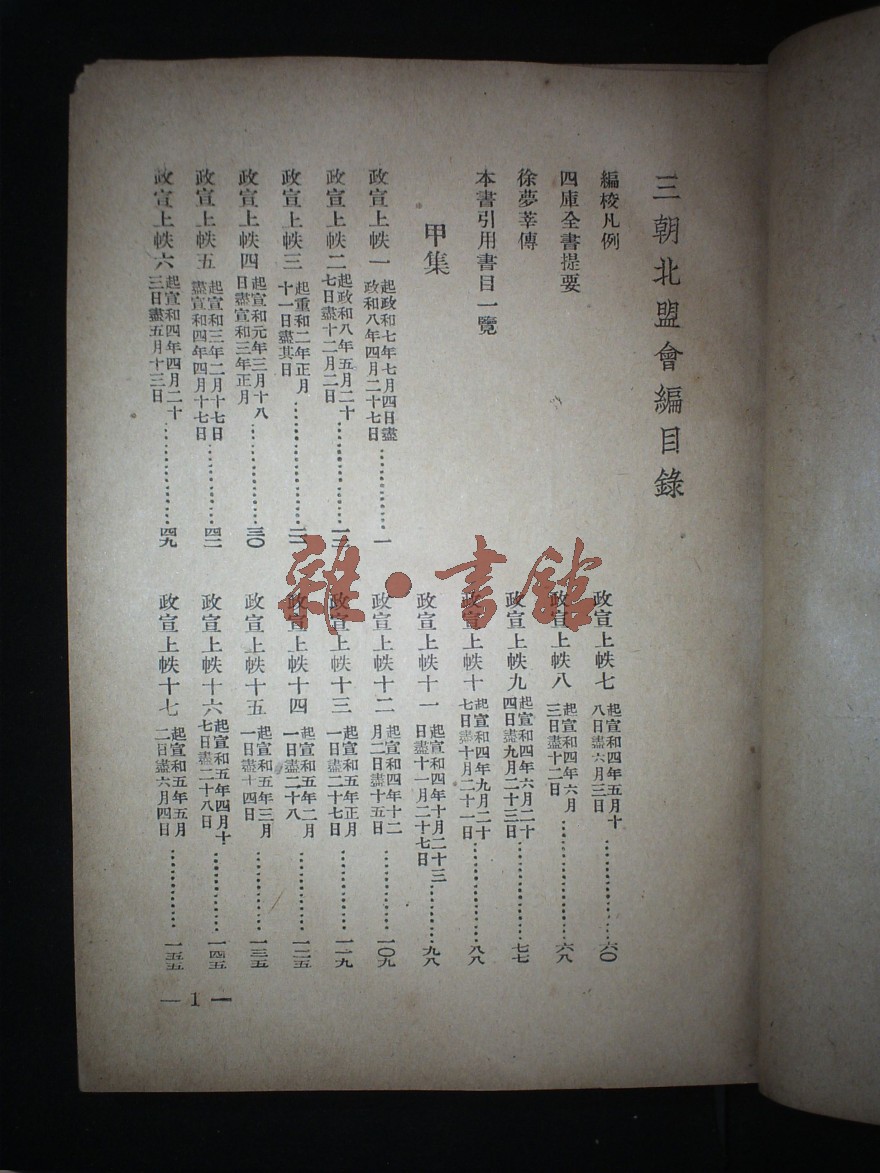 三朝北盟會編目錄
編校凡例
四庫全書提要
徐夢莘傳
本書引用書目一覽
甲集
政宣上帙一 起政和七年七月四日盡政和八年四月二十七日…………一
政宣上帙二 起政和八年五月二十七日盡十二月二日…………一二
政宣上帙三 起重和二年正月十一日盡其日…………二一
政宣上帙四 起宣和元年三月十八日盡宣和三年正月…………三〇
政宣上帙五 起宣和三年二月十七日盡宣和四年四月十七日…………四二
政宣上帙六 起宣和四年四月二十三日盡五月十三日…………四九
政宣上帙七 起宣和四年五月十八日盡六月三日…………六〇
政宣上帙八 起宣和四年六月三日盡十二日…………六八
政宣上帙九 起宣和四年六月二十四日盡九月二十三日…………七七
政宣上帙十 起宣和四年九月二十七日盡十月二十一日…………八八
政宣上帙十一 起宣和四年十月二十三日盡十一月二十七日…………九八
政宣上帙十二 起宣和四年十二月二日盡十五日…………一〇九
政宣上帙十三 起宣和五年正月一日盡二十七日…………一一九
政宣上帙十四 起宣和五年二月一日盡二十八…………一二五
政宣上帙十五 起宣和五年三月一日盡十四日…………一三五
政宣上帙十六 起宣和五年四月十七日盡二十八日…………一四五
政宣上帙十七 起宣和五年五月二日盡六月四日…………一五五
— 1 —
雜·書館